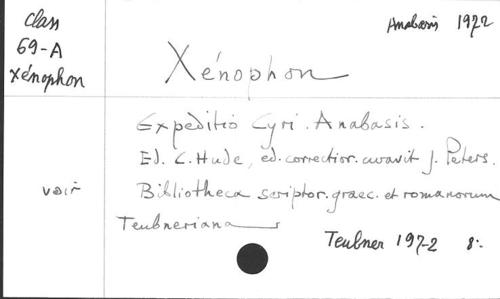 Class
69-A
Xénophon
Anabasis 1972
Xénophon
Expeditio Cyri. Anabasis.
Ed. C. Hude, ed. correctior. curavit J. Peters.
voir
Bibliotheca scriptor. graec. et romanorum
Teubneriana
Teubner 197-2 8: